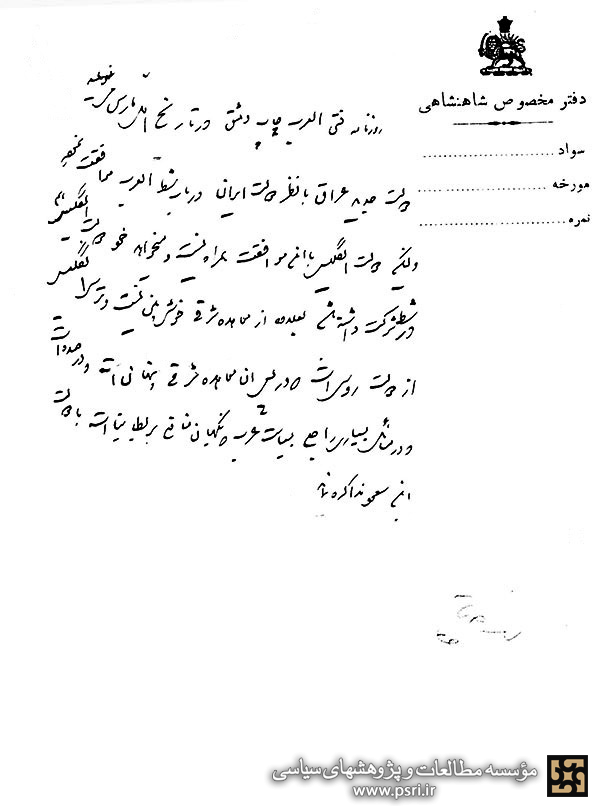 دفتر مخصوص شاهنشاهی
سواد
مورخه
نمره
روزنامه فتی العرب چاپ دمشق در تاریخ مارس
دولت جدید عراق با نظر دولت ایران در باب شط العرب موافقت
ولیکن دولت انگلیس با این موافقت همراه نیست و میخواهد خود دولت انگلیس
در شط شرکت داشته باشد بعلاوه از معاهده شرقی خوش بین نیست و ترس انگلیس
از دولت روس است که در پس آن معاهده شرقی پنهان است و در صدد است
و در مسائل بسیاری راجع بسیاست عرب و نگهبان منافع بریطانیا است با دولت
ابن سعود مذاکره نماید
مؤسسه مطالعات و پژوهشهای سیاسی
www.psri.ir